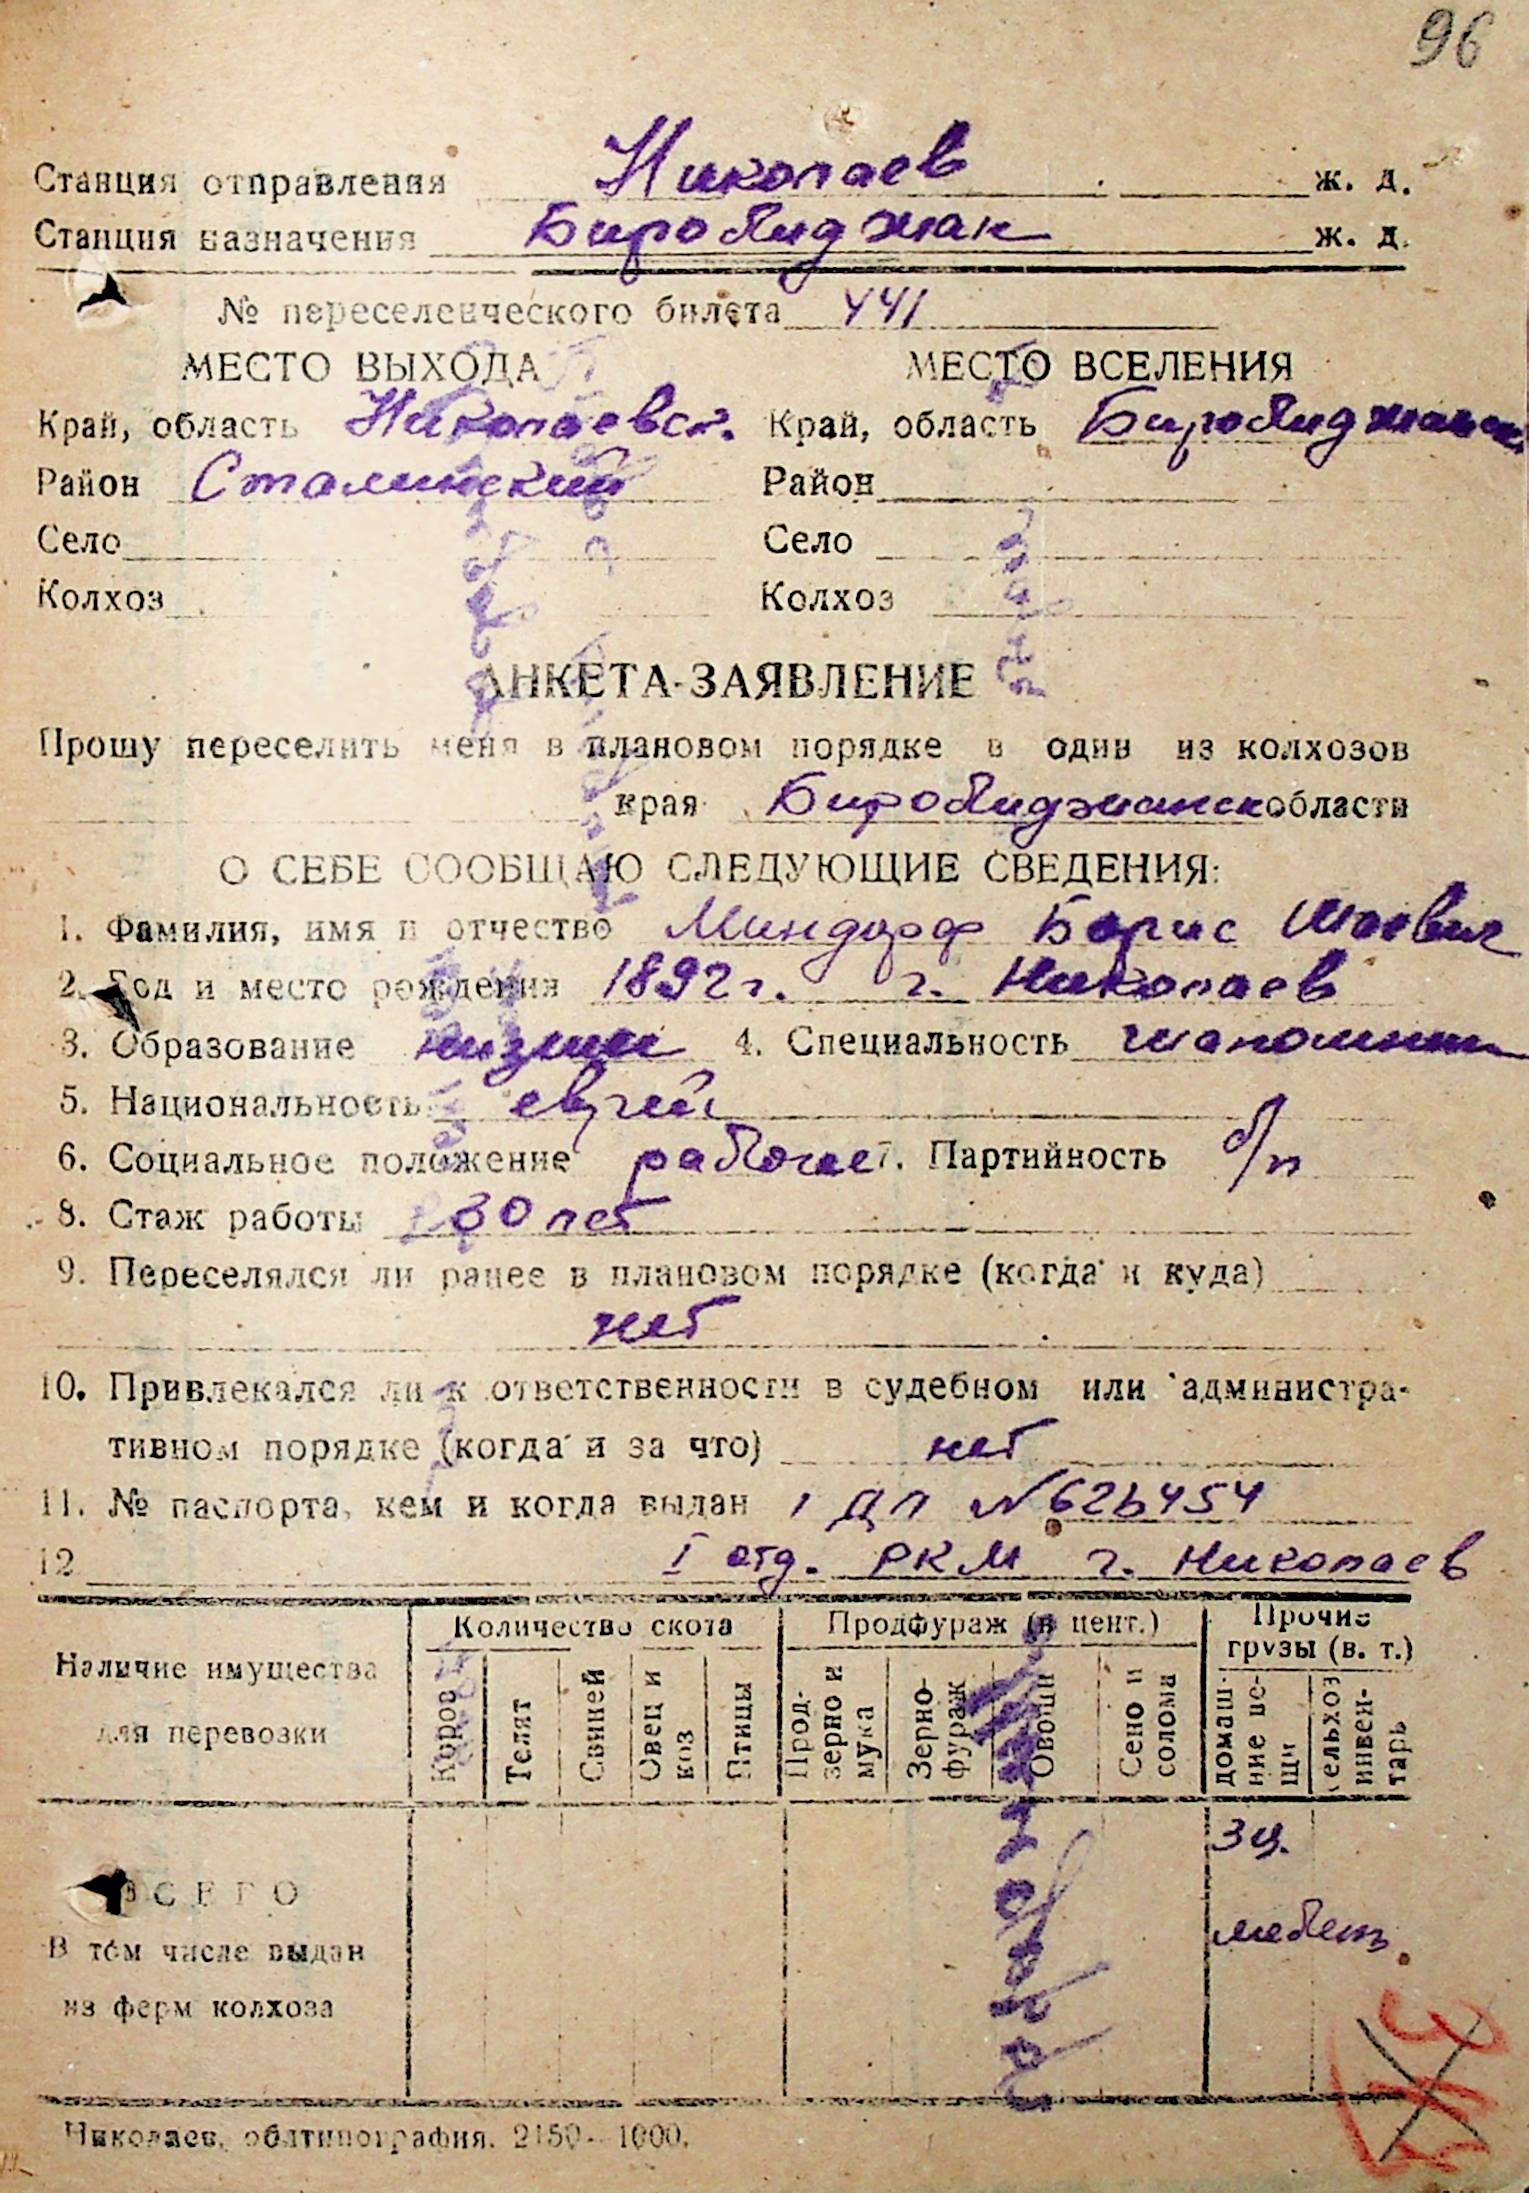 96
Станция отправления Николаев ж. д.
Станция назначения Биробиджан ж. д.
№ переселенческого билета 441
МЕСТО ВЫХОДА МЕСТО ВСЕЛЕНИЯ
Край, область Николаевск. Край, область Биробиджанск.
Район Сталинский Район
Село Село
Колхоз Колхоз
АНКЕТА-ЗАЯВЛЕНИЕ
Прошу переселить меня в плановом порядке в один из колхозов
края Биробиджанск области
О СЕБЕ СООБЩАЮ СЛЕДУЮЩИЕ СВЕДЕНИЯ:
1. Фамилия, имя и отчество Миндорф Борис
2. Год и место рождения 1892 г. г. Николаев
3. Образование низшее 4. Специальность
5. Национальность еврей
6. Социальное положение рабочий 7. Партийность б/п
8. Стаж работы 30 лет
9. Переселялся ли ранее в плановом порядке (когда и куда)
нет
10. Привлекался ли к ответственности в судебном или администра-
тивном порядке (когда и за что) нет
11. № паспорта, кем и когда выдан № 626454
12 I отд. РКМ г. Николаев
Наличие имущества для перевозки
Количество скота Продфураж (в цент.) Прочие грузы (в. т.)
Коров Телят Свиней Овец и коз Птицы Прод-зерно и мука Зерно-фураж Овощи Сено и солома домаш-ние ве-щи сельхоз инвен-тарь
3 ц.
ВСЕГО
мебель
В том числе выдан
из ферм колхоза
Николаев, облтипография. 2150—1000.